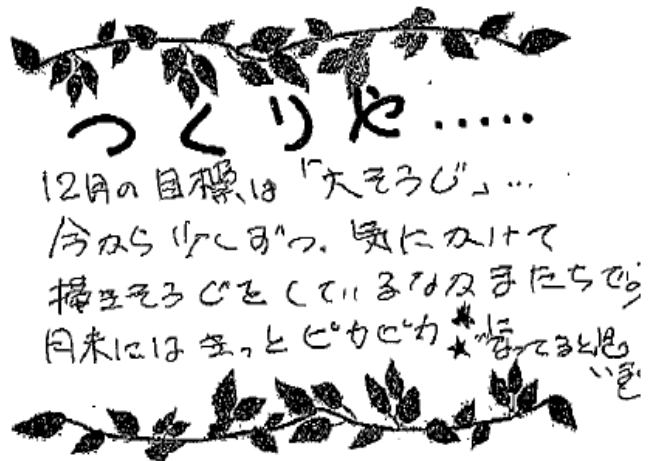 つくりや.....
12月の目標は「大そうじ」…
今から少しずつ、気にかけて
掃きそうじをしているなかまたちです。
月末にはきっとピカピカ★★に
なってると思
います